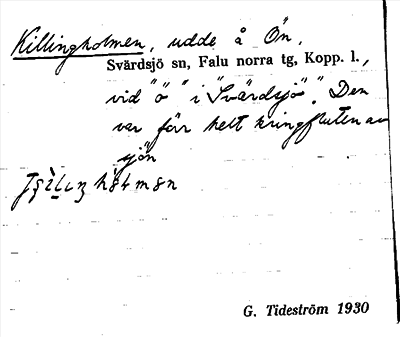 Killingholmen, udde å Ön,
Svärdsjö sn, Falu norra tg, Kopp. l.,
vid "ö" i "Svärdsjö". Den
var förr helt kringfluten av
sjön
G. Tideström 1930